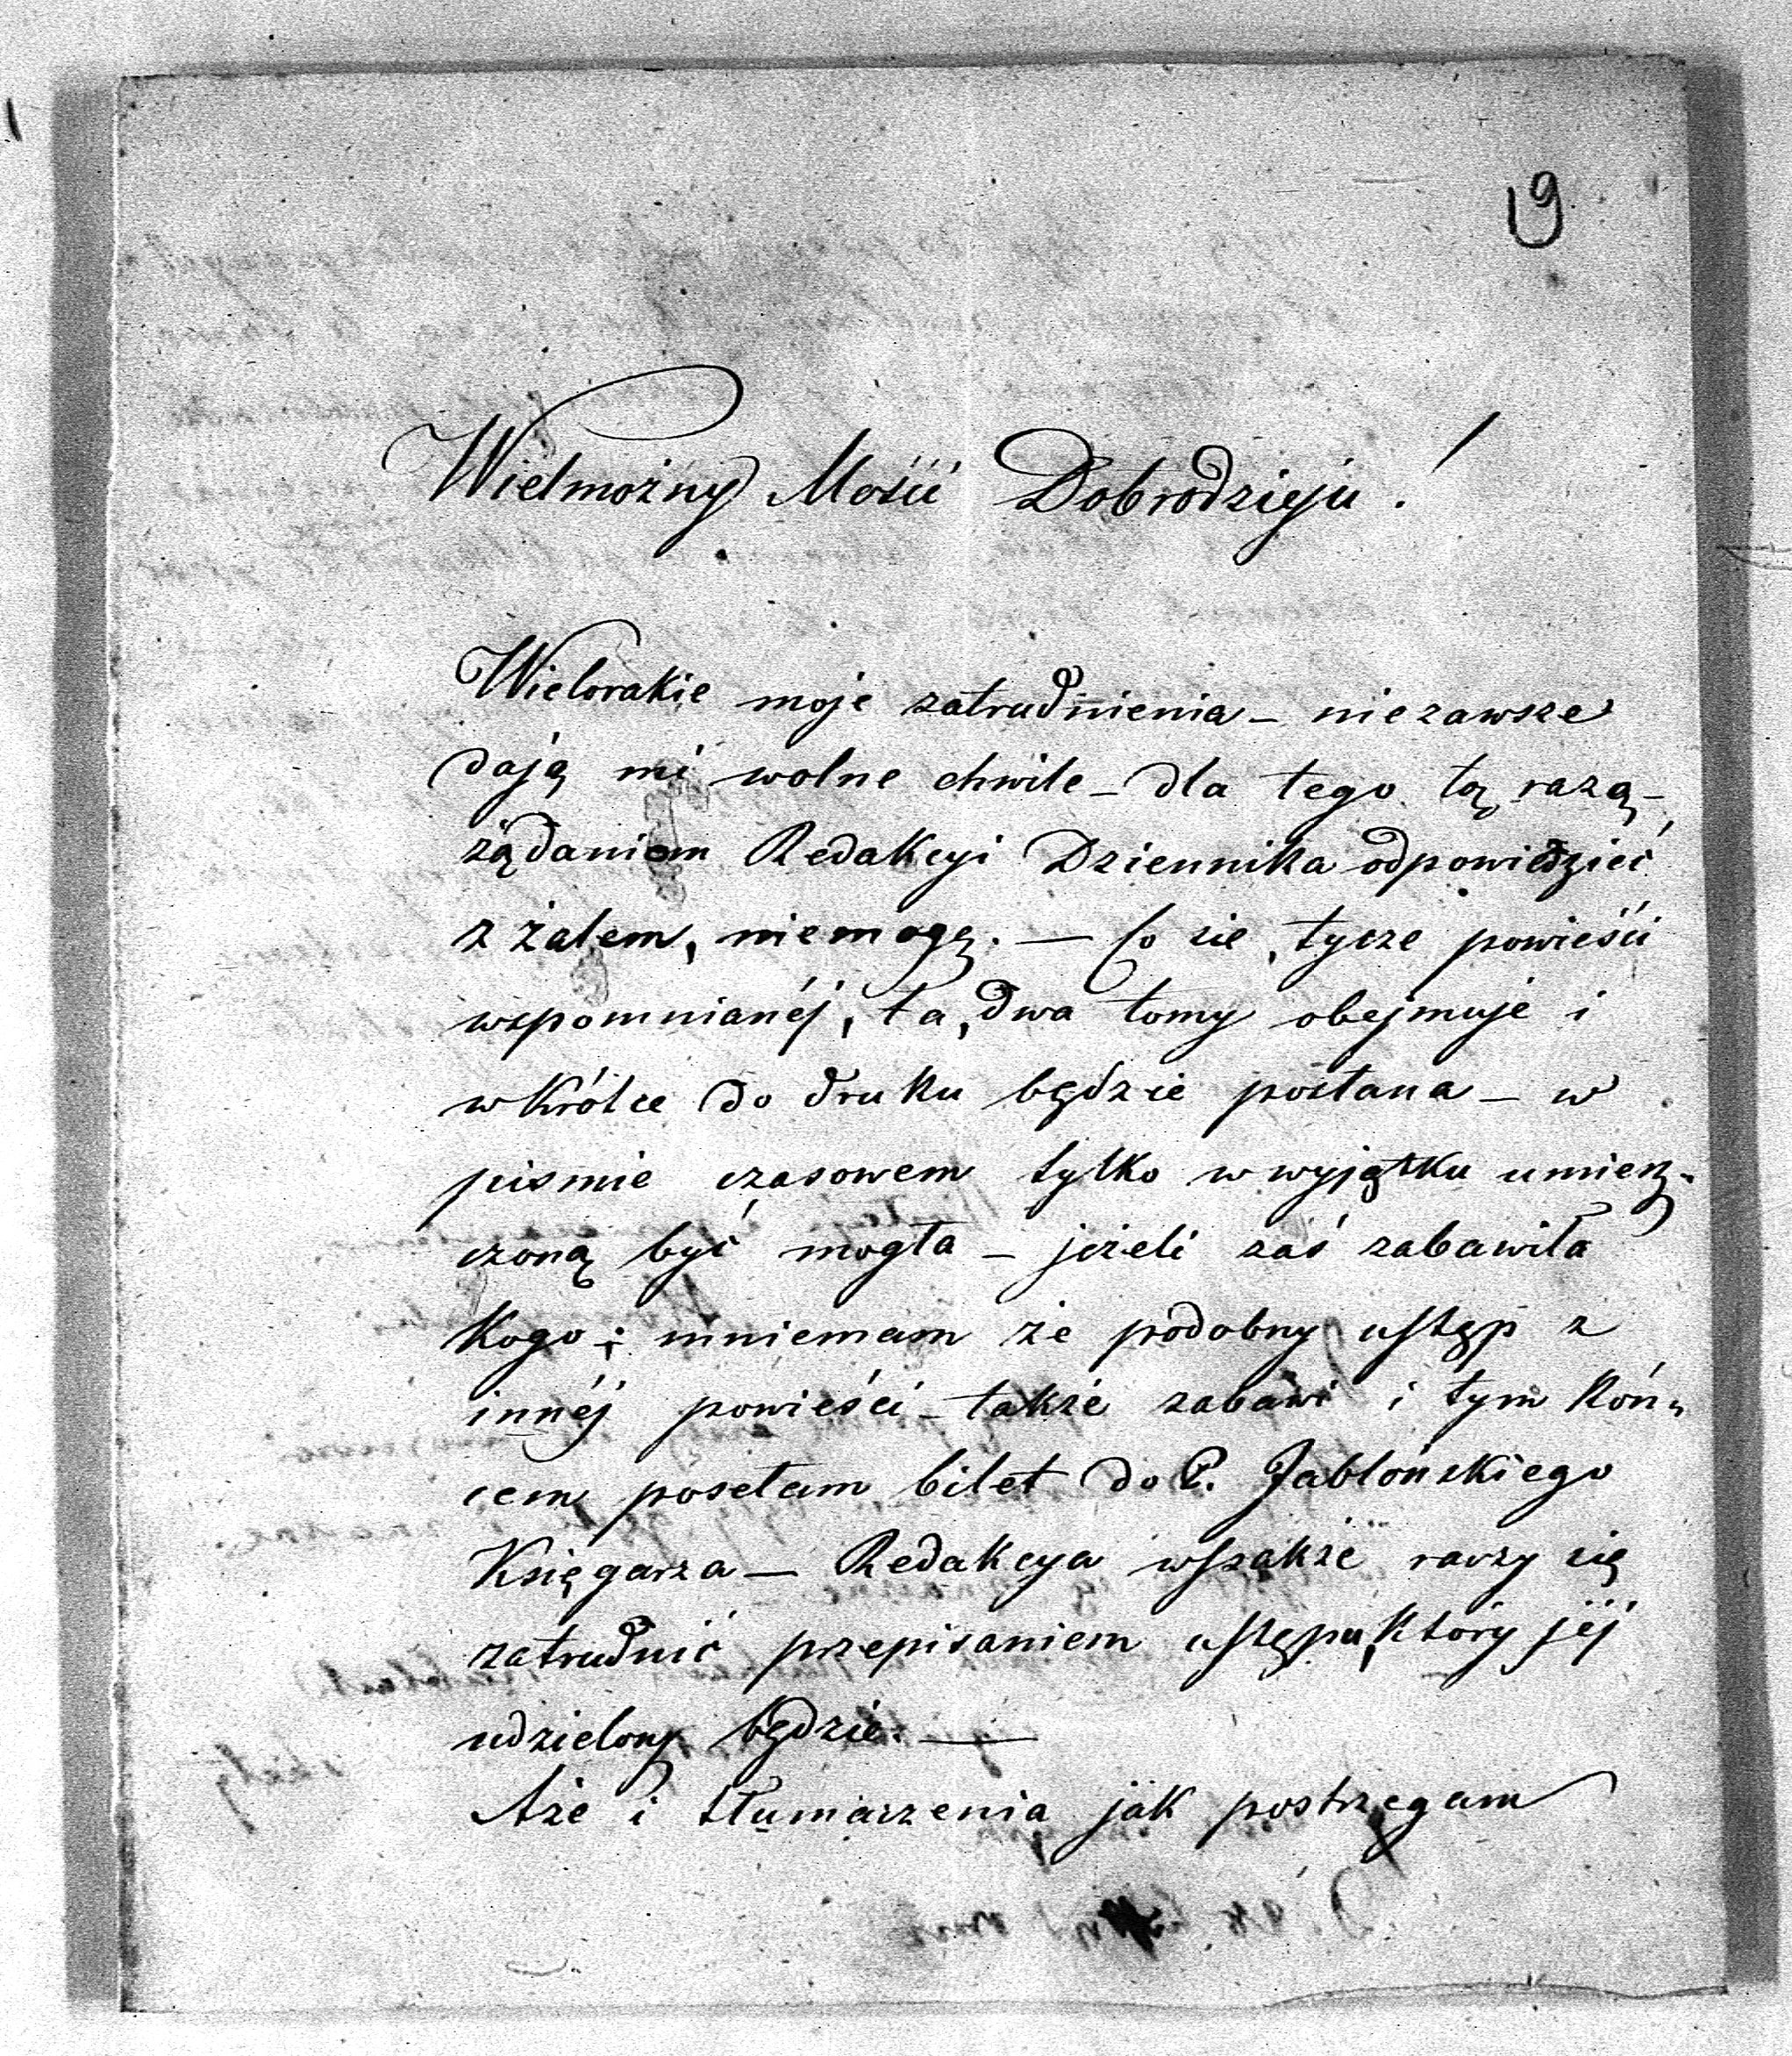 19
Wielmożny Mości Dobrodzieju!
Wielorakie moje zatrudnienia – niezawsze
dają mi wolne chwile – dla tego tą razą –
żądaniom Redakcyi Dziennika odpowiedzieć
z żalem, niemogę. – Co sie, tycze powieści
wspomnianéj, ta, dwa tomy obejmuje i
wkrótce do druku będzie posłana – w
pismie czasowem tylko w wyjątku umiesz-
czoną być mogła – jeżeli zaś zabawiła
Kogo; mniemam że podobny ustęp z
innéj powieści – także zabawi i tym koń-
cem posełam bilet do P. Jabłońskiego
Księgarza – Redakcya wszakże raczy się
zatrudnić przepisaniem ustępu, który jéj
udzielony będzie. –
Aże i tłumaczenia jak postrzegam